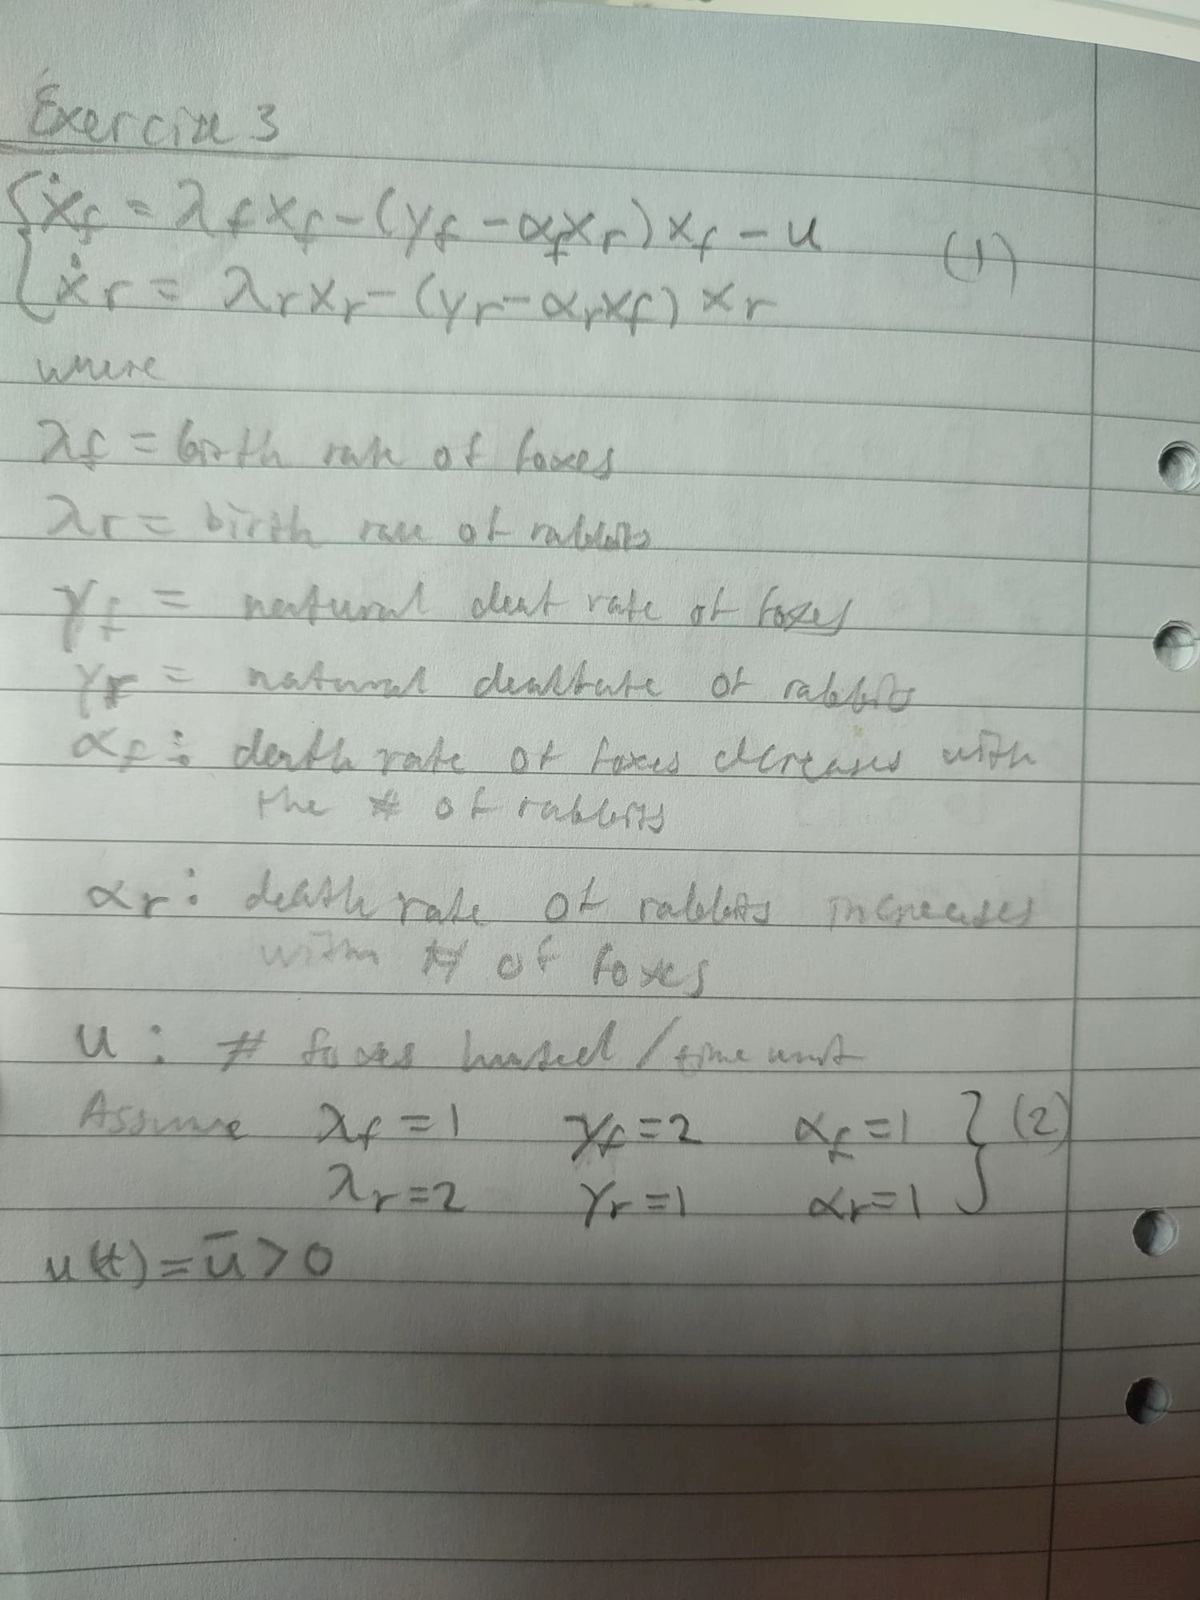 Exercise 3
ẋf = λfxf - (γf - αfxr) xf - u (1)
ẋr = λrxr - (γr - αrxf) xr
where
λf = birth rate of foxes
λr = birth rate of rabbits
γf = natural deat rate of foxes
γr = natural deathrate of rabbits
αf : death rate of foxes dcreases with
the # of rabbits
αr : death rate of rabbits increases
with # of foxes
u : # foxes hunted / time unit
Assume λf = 1 γf = 2 αf = 1 } (2)
λr = 2 γr = 1 αr = 1
u(t) = ū > 0